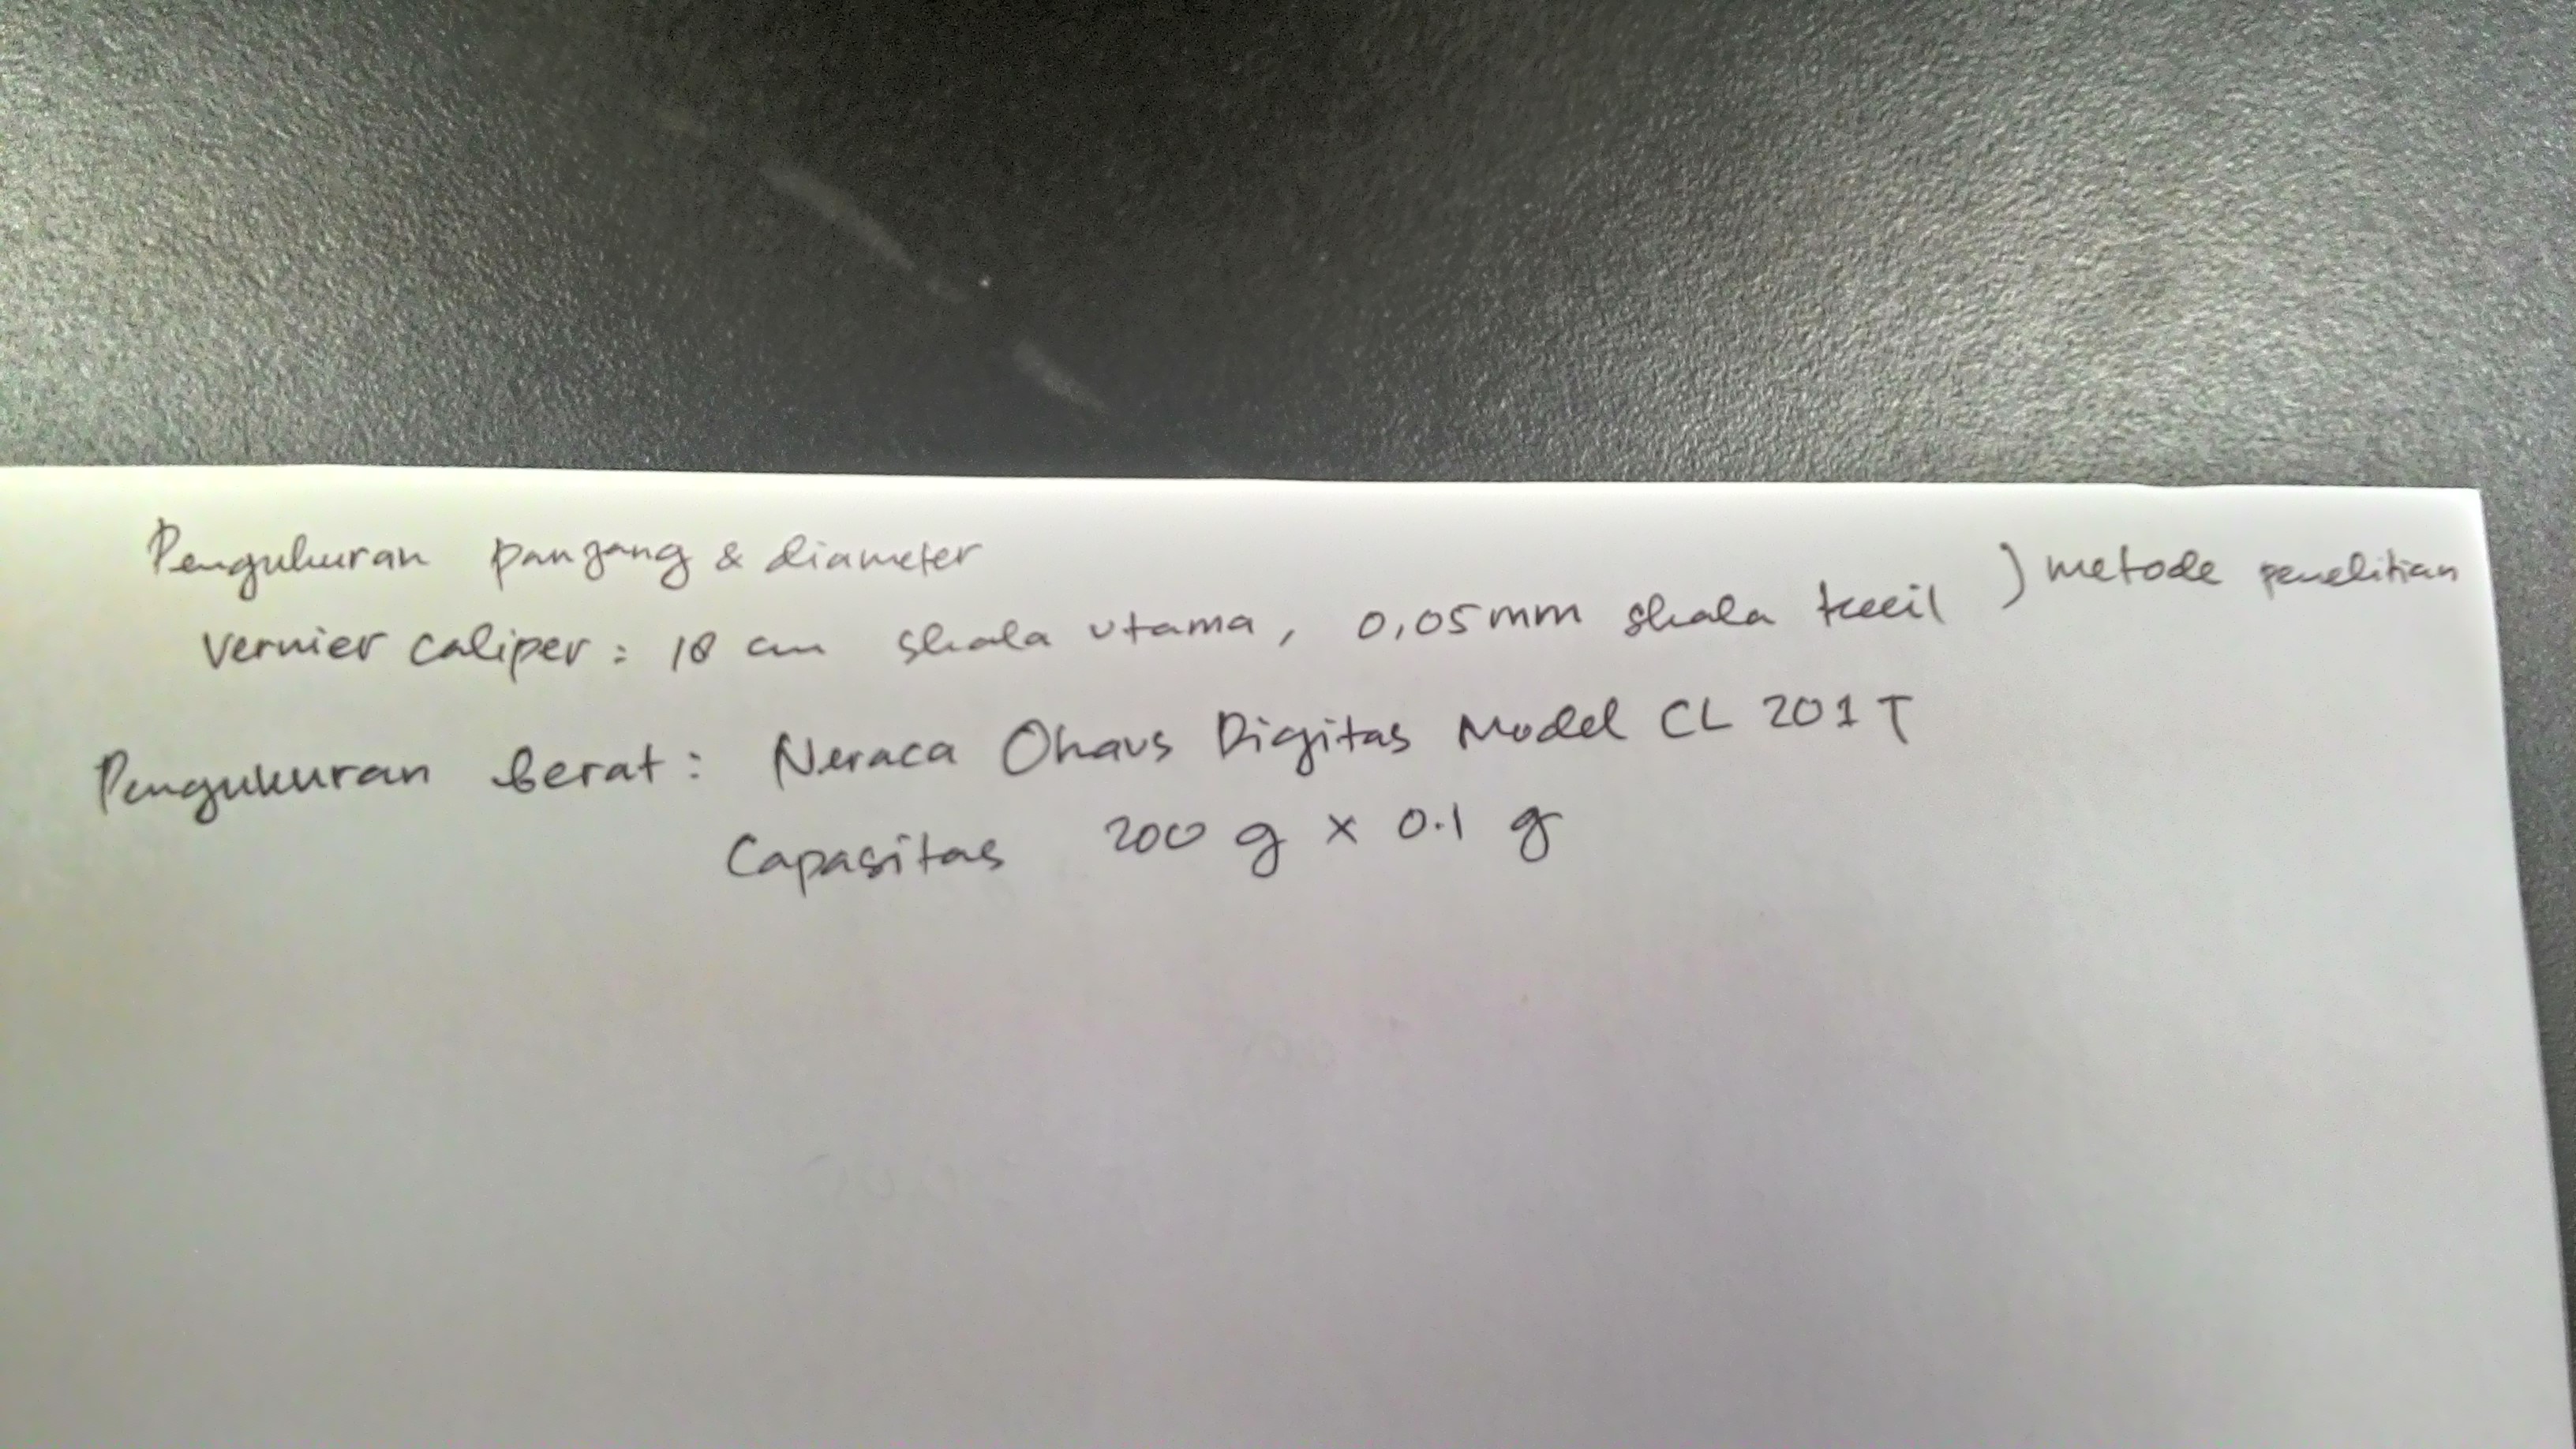 Pengukuran panjang & diameter
Vernier caliper : 18 cm skala utama, 0,05 mm skala kecil ) metode penelitian
Pengukuran berat : Neraca Ohaus Digitas Model CL 201 T
Capasitas 200 g x 0.1 g